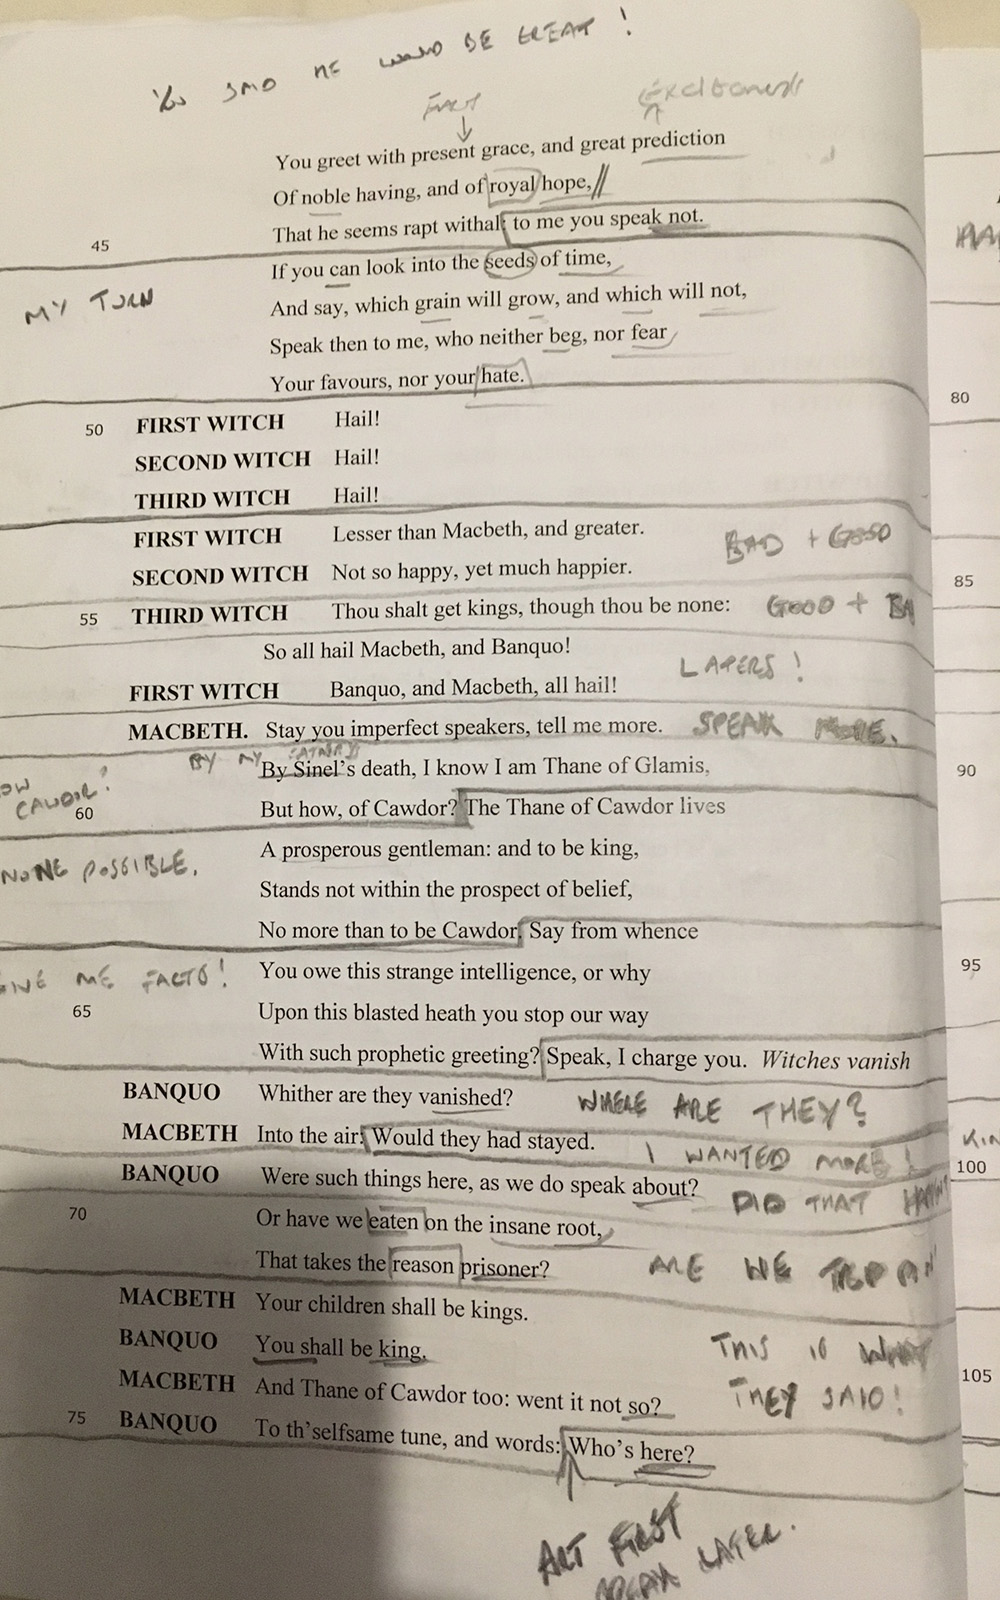 YOU SAID HE WOULD BE GREAT!
FACT
Excitement
You greet with present grace, and great prediction
Of noble having, and of royal hope,
45 That he seems rapt withal: to me you speak not.
If you can look into the seeds of time,
MY TURN And say, which grain will grow, and which will not,
Speak then to me, who neither beg, nor fear
Your favours, nor your hate.
50 FIRST WITCH Hail!
SECOND WITCH Hail!
THIRD WITCH Hail!
FIRST WITCH Lesser than Macbeth, and greater. BAD + GOOD
SECOND WITCH Not so happy, yet much happier.
55 THIRD WITCH Thou shalt get kings, though thou be none: GOOD +
So all hail Macbeth, and Banquo!
LAYERS!
FIRST WITCH Banquo, and Macbeth, all hail!
MACBETH. Stay you imperfect speakers, tell me more. SPEAK MORE.
BY MY
By Sinel's death, I know I am Thane of Glamis,
CAWDOR!
60 But how, of Cawdor? The Thane of Cawdor lives
A prosperous gentleman: and to be king,
NONE POSSIBLE.
Stands not within the prospect of belief,
No more than to be Cawdor. Say from whence
GIVE ME FACTS! You owe this strange intelligence, or why
65 Upon this blasted heath you stop our way
With such prophetic greeting? Speak, I charge you. Witches vanish
BANQUO Whither are they vanished? WHERE ARE THEY?
MACBETH Into the air: Would they had stayed. I WANTED MORE!
BANQUO Were such things here, as we do speak about? DID THAT
70 Or have we eaten on the insane root,
That takes the reason prisoner? ARE WE
MACBETH Your children shall be kings.
BANQUO You shall be king. THIS IS WHAT
MACBETH And Thane of Cawdor too: went it not so? THEY SAID!
75 BANQUO To th'selfsame tune, and words: Who's here?
ART FIRST
LATER.
80
85
90
95
100
105